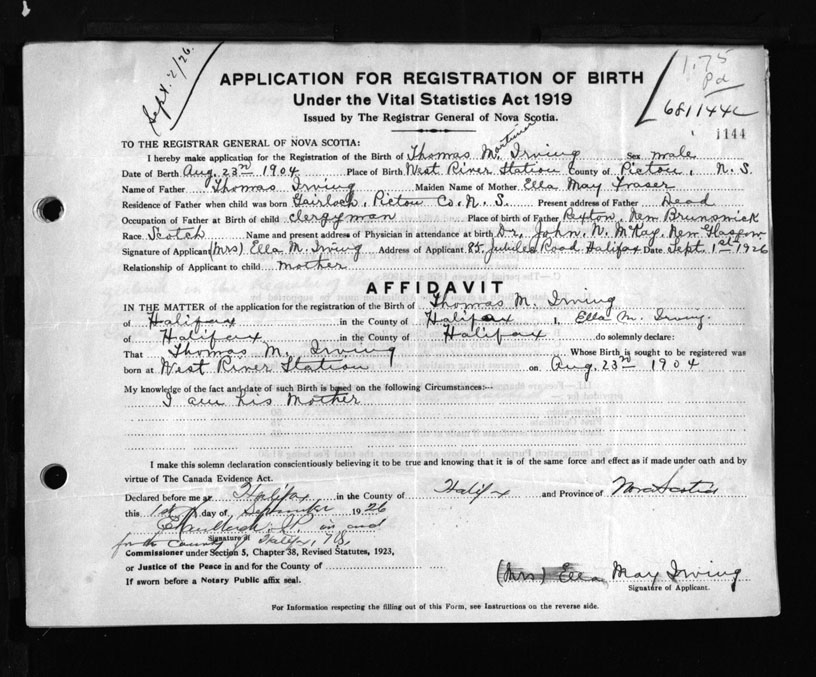 Sept. 2/26.
1.75
Pd
681144C
1144
APPLICATION FOR REGISTRATION OF BIRTH
Under the Vital Statistics Act 1919
Issued by The Registrar General of Nova Scotia.
TO THE REGISTRAR GENERAL OF NOVA SCOTIA:
Mortimer
I hereby make application for the Registration of the Birth of Thomas M. Irving Sex male
Date of Birth Aug. 23rd 1904 Place of Birth West River Station County of Pictou, N. S.
Name of Father Thomas Irving Maiden Name of Mother Ella May Fraser
Residence of Father when child was born Gairloch, Pictou Co. N. S. Present address of Father Dead
Occupation of Father at Birth of child clergyman Place of birth of Father Rexton, New Brunswick
Race Scotch Name and present address of Physician in attendance at birth Dr. John. N. McKay, New Glasgow
Signature of Applicant (Mrs) Ella M. Irving Address of Applicant 85. Jubilee Road Halifax Date Sept. 1st 1926
Relationship of Applicant to child mother
AFFIDAVIT
IN THE MATTER of the application for the registration of the Birth of Thomas M. Irving
of Halifax in the County of Halifax I, Ella M. Irving.
of Halifax in the County of Halifax do solemnly declare:
That Thomas M. Irving Whose Birth is sought to be registered was
born at West River Station on Aug. 23rd 1904
My knowledge of the fact and date of such Birth is based on the following Circumstances:—
I am his Mother
I make this solemn declaration conscientiously believing it to be true and knowing that it is of the same force and effect as if made under oath and by
virtue of The Canada Evidence Act.
Declared before me at Halifax in the County of Halifx and Province of Nova Scotia
this 1st day of September 1926
J.P. in and
for the County of Halifax, N.S.
Signature of
Commissioner under Section 5, Chapter 38, Revised Statutes, 1923,
or Justice of the Peace in and for the County of
If sworn before a Notary Public affix seal.
(Mrs) Ella May Irving
Signature of Applicant.
For Information respecting the filling out of this Form, see Instructions on the reverse side.